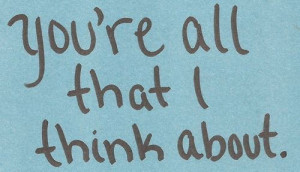 you're all
that I
think about.